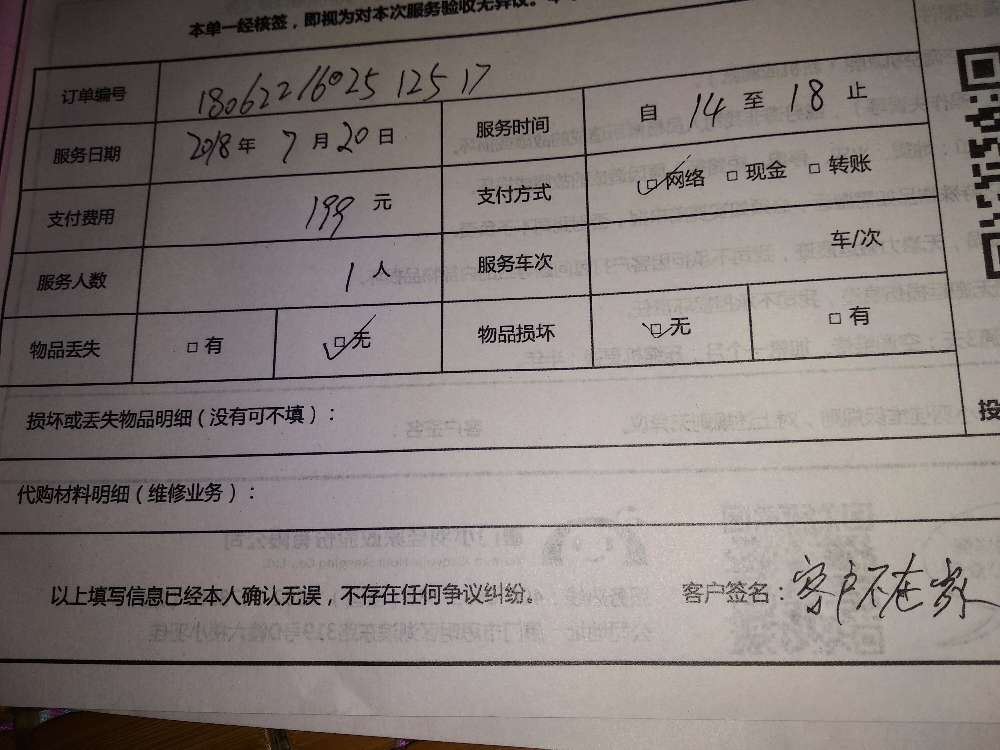 本单一经核签，即视为对本次服务验收无异议。
订单编号 180622160251 2517
服务日期 2018年 7月20日 服务时间 自 14 至 18 止
支付费用 199 元 支付方式 ☑网络 □现金 □转账
服务人数 1 人 服务车次 车/次
物品丢失 □有 ☑无 物品损坏 ☑无 □有
损坏或丢失物品明细（没有可不填）：
投
代购材料明细（维修业务）：
以上填写信息已经本人确认无误，不存在任何争议纠纷。 客户签名：客户不在家